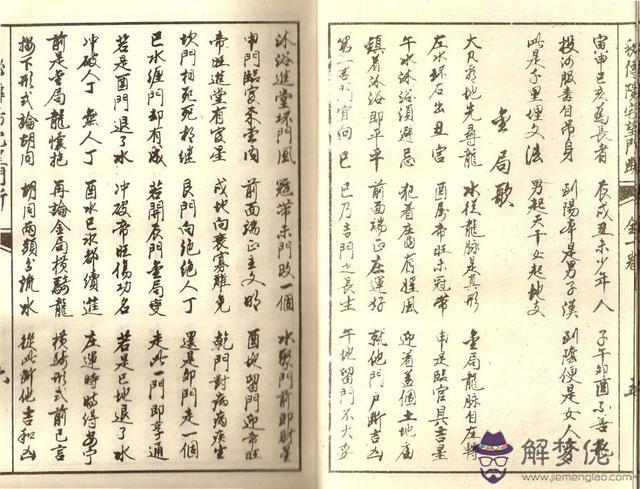 寅申巳亥為長者 辰戌丑未少年人 子午卯酉
投河服毒自吊身 到陽平是男子漢 到陰便是女人
此是千里埋文法 男起天干女起地支
金局歌
大凡看地先尋龍 水從龍脉是真形 金局龍脉自庄轉
左水环石出丑宮 酉属帝旺未冠帶 申是臨官其吉星
午水沐浴須避忌 犯着庄園有姪風 迎着蓋個土地廟
鎮着沐浴即平平 前面端正庄運好 就他門戶斷吉凶
第一吉門宜向巳 巳乃吉門之長生 午地留門不大
沐浴進堂坏門風 冠帶未門敗一個 水聚門前即財星
申門臨官來當門 前面端正主文明 酉地留門迎帝旺
帝旺進堂有寡星 戌地向衰寡難免 乾門對病病疾生
坎門相死死相继 艮門向絕絕人丁 還是卯門走一個
巳水纏門却有成 若開辰門金局變 走此一門即享通
若是酉門退了水 冲破帝旺傷功名 若是巳地退了水
冲破人丁無人丁 酉水巳水都續進 庄運時時得安宁
前是金局龍懷抱 再論金局橫騎龍 橫騎形式前已言
按下形式論胡同 胡同兩頭分流水 從此斷他吉和凶
解梦佬
www.jiemenglao.com